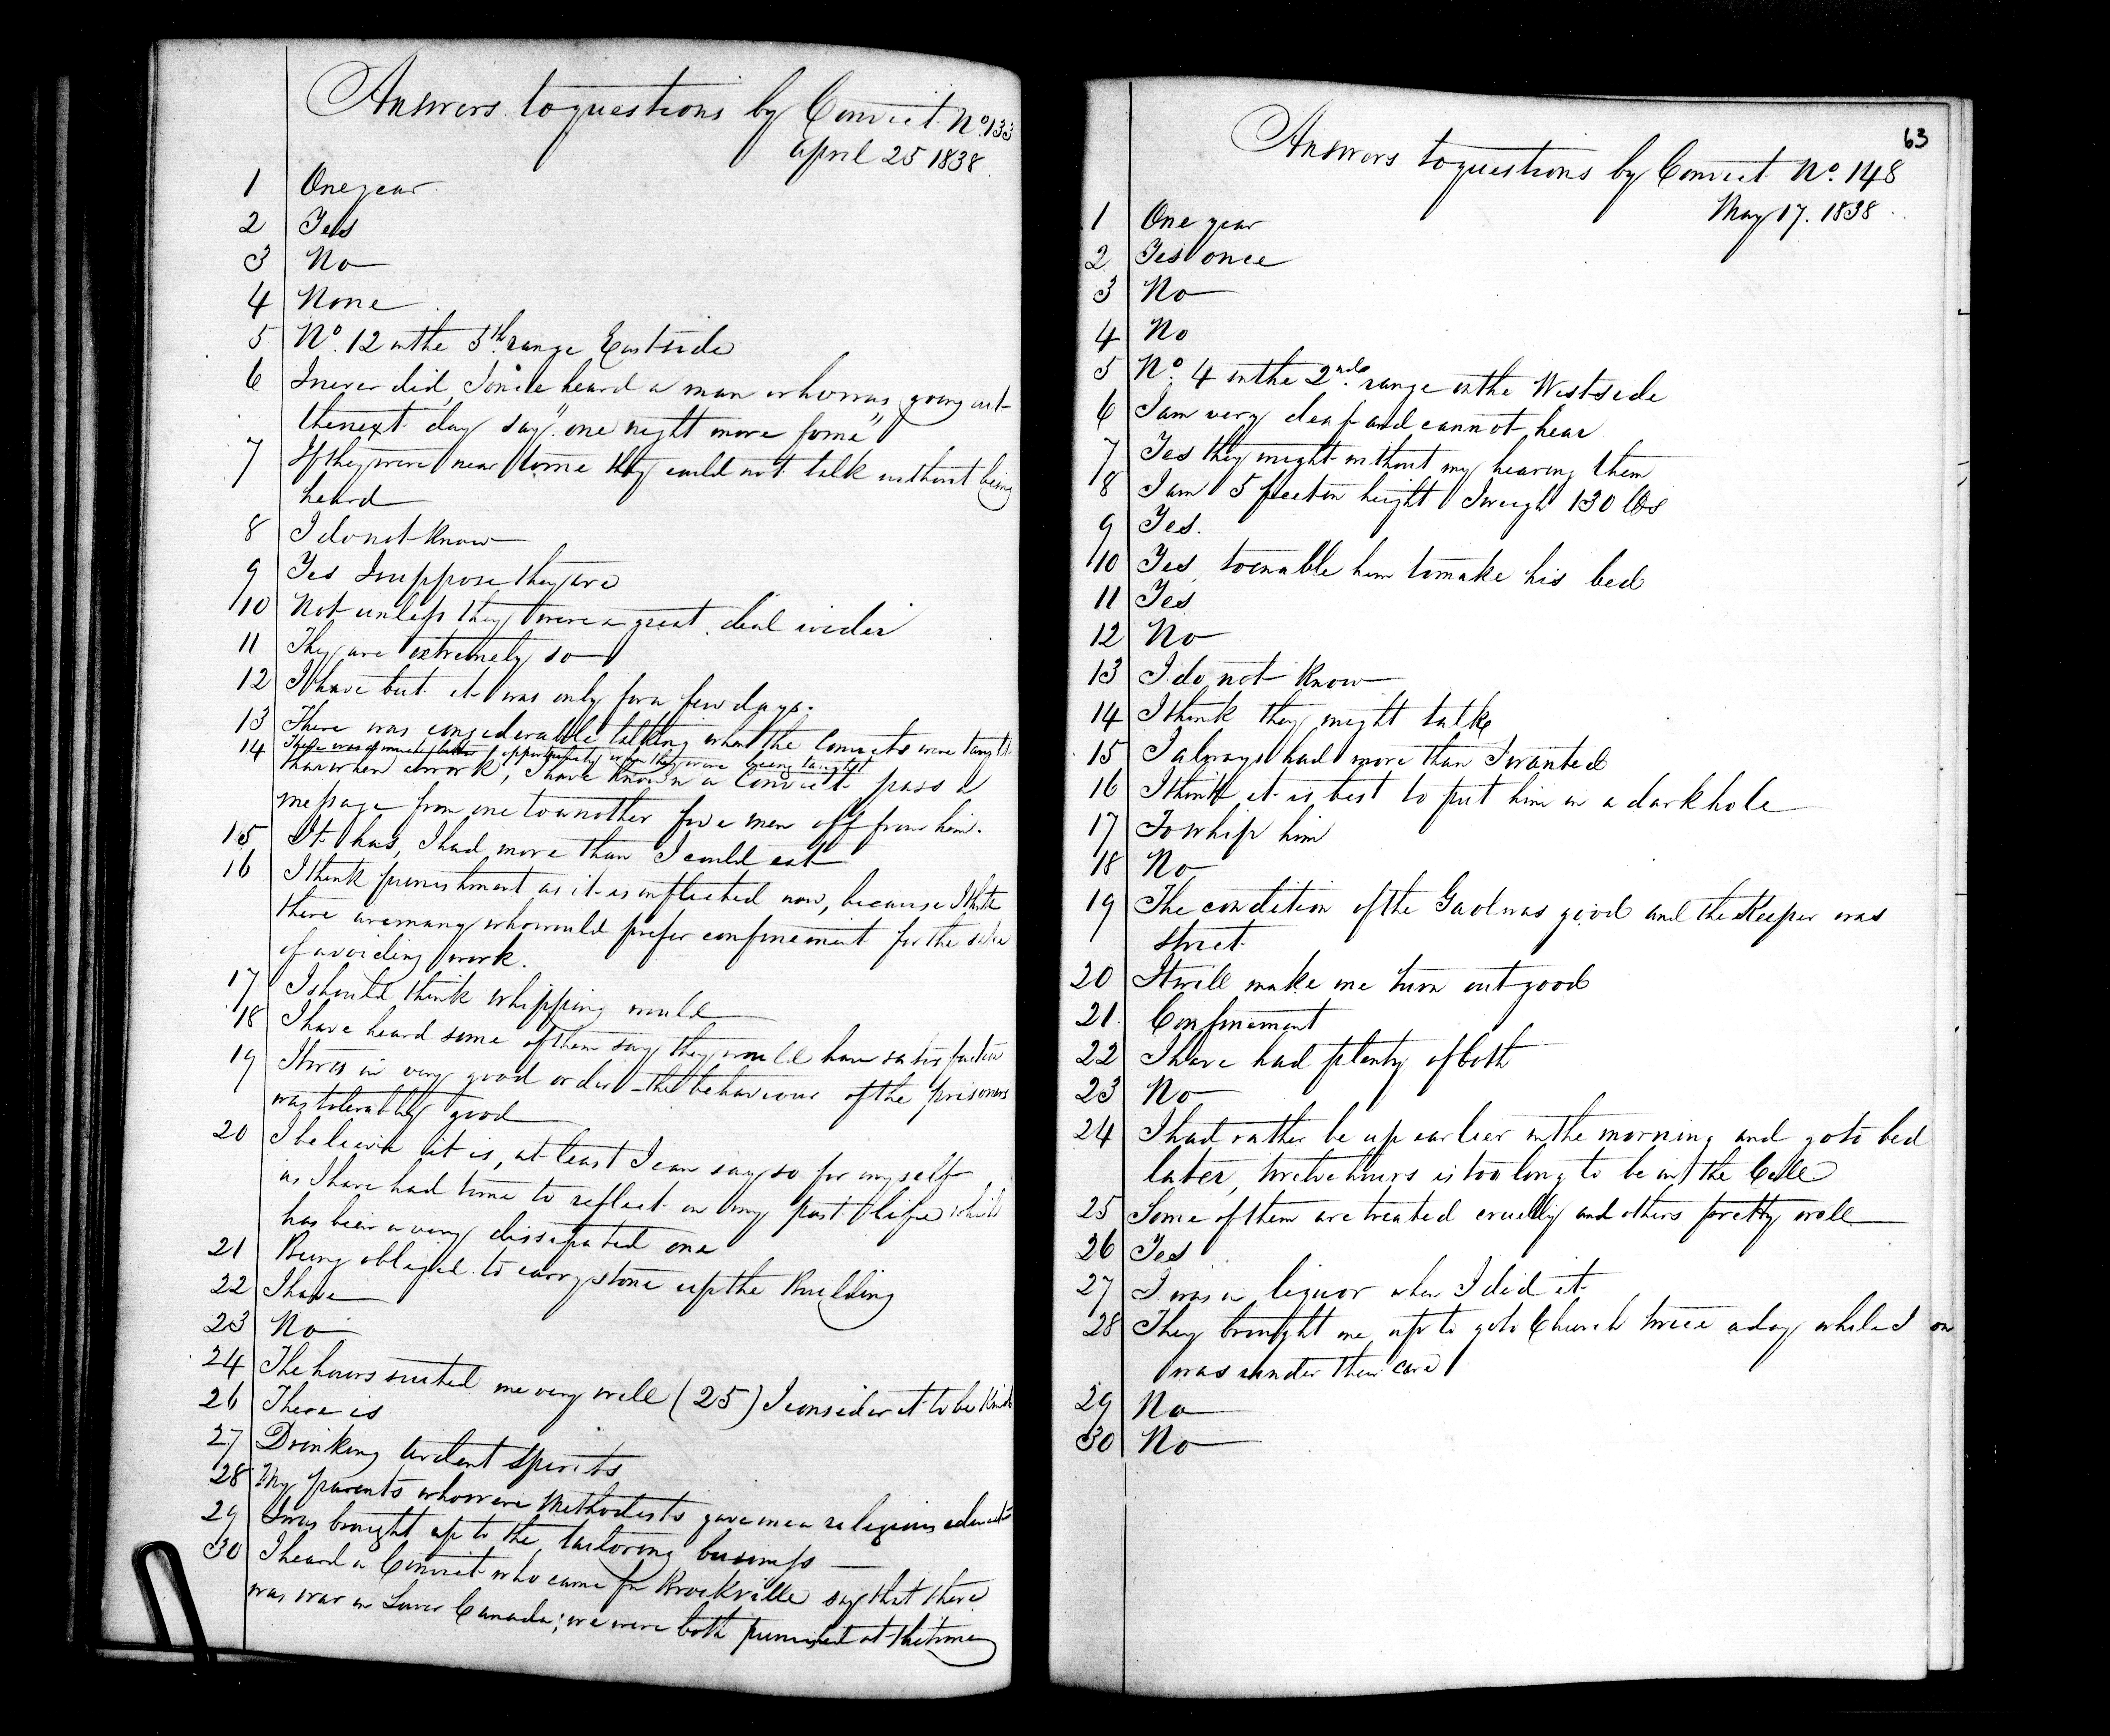 Answers to questions by Convict No. 133
April 25 1838.
1 One year
2 Yes
3 No
4 None
5 No. 12 in the 5th range East side
6 I never did, I once heard a man who was going out
the next day say "one night more for me"
7 If they were near to me they could not talk without being
heard
8 I do not know
9 Yes I suppose they are
10 Not unless they were a great deal wider
11 They are extremely so
12 I have but it was only for a few days.
13 There was considerable talking when the Convicts were
14 There was opportunity when they were being taught
than when at work, I have known a Convict pass a
message from one to another five men off from him.
15 It has, I had more than I could eat
16 I think punishment as it is inflicted now, because I think
there are many who would prefer confinement for the sake
of avoiding work.
17 I should think whipping would
18 I have heard some of them say they would have satisfaction
19 It was in very good order – the behaviour of the prisoners
was tolerably good
20 I believe it is, at least I can say so for myself
as I have had time to reflect on my past life which
has been a very dissipated one
21 Being obliged to carry stone up the Building
22 I have
23 No
24 The hours suited me very well (25) I consider it to be kind
26 There is
27 Drinking ardent spirits
28 My parents who were Methodists gave me a religious
29 I was brought up to the tailoring business
30 I heard a Convict who came fr Brockville say that there
was war in Lower Canada; we were both punished at the time
63
Answers to questions by Convict No. 148
May 17. 1838
1 One year
2 Yes once
3 No
4 No
5 No. 4 in the 2nd. range on the West side
6 I am very deaf and cannot hear
7 Yes they might without my hearing them
8 I am 5 feet in height I weigh 130 lbs
9 Yes.
10 Yes, to enable him to make his bed
11 Yes
12 No
13 I do not know
14 I think they might talk
15 I always had more than I wanted
16 I think it is best to put him in a dark hole
17 To whip him
18 No
19 The condition of the Gaol was good and the Keeper was
strict
20 It will make me turn out good
21. Confinement
22 I have had plenty of both
23 No
24 I had rather be up earlier in the morning and go to bed
later, twelve hours is too long to be in the Cell
25 Some of them are treated cruelly and others pretty well
26 Yes
27 I was in liquor when I did it
28 They brought me up to go to Church twice a day while I
was under their care
29 No
30 No